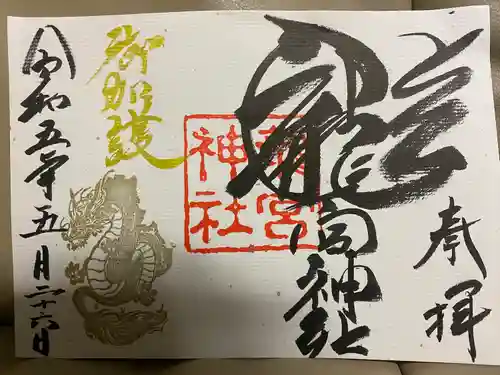 奉拝
龍
宮神社
龍宮
神社
御加護
令和五年五月二十六日